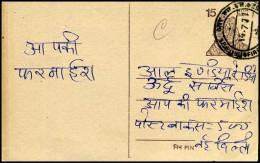 आपकी
फरमाईश
15
आल इण्डिया रेडियो
उर्दू सर्विस
आपकी फरमाईश
पोस्ट बाक्स = 500
नई दिल्ली
पिन PIN